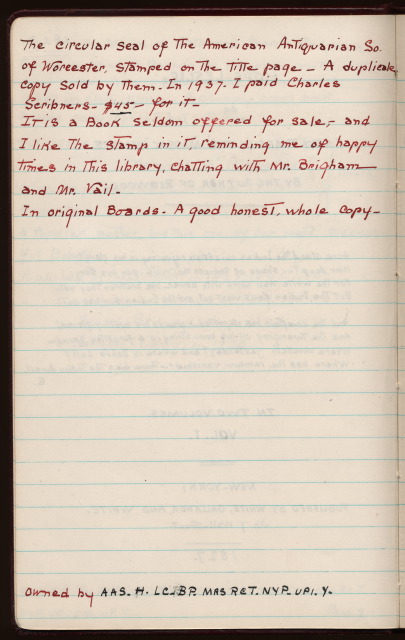 The circular seal of The American Antiquarian So.
of Worcester, stamped on The Title page - A duplicate
copy sold by Them. In 1937- I paid Charles
Scribners - $45- for it -
It is a Book seldom offered for sale, - and
I like The stamp in it, reminding me of happy
times in this library, chatting with Mr. Brigham
and Mr. Vail -
In original Boards. A good honest, whole copy -
Owned by AAS. H. LC. BP. MRS RET. NYP. UPI. Y.